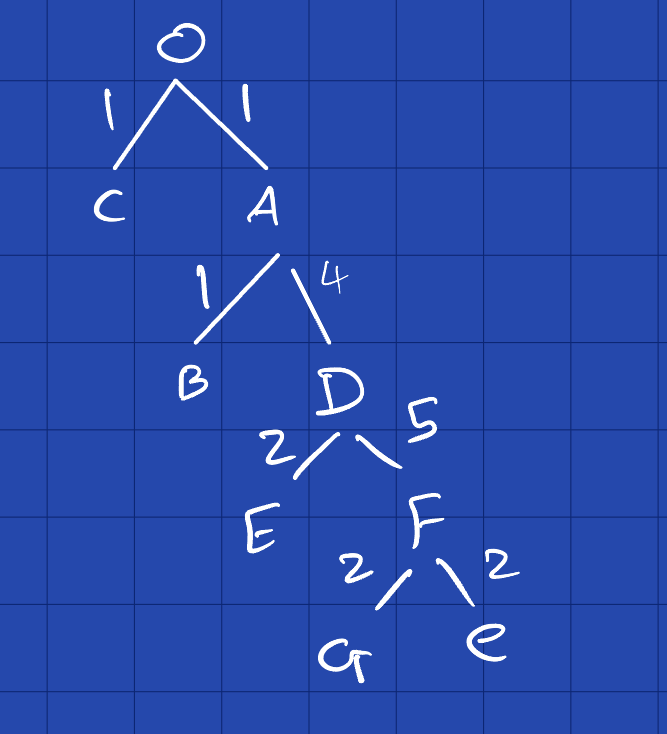 O
1 1
C A
1 4
B D
2 5
E F
2 2
G e